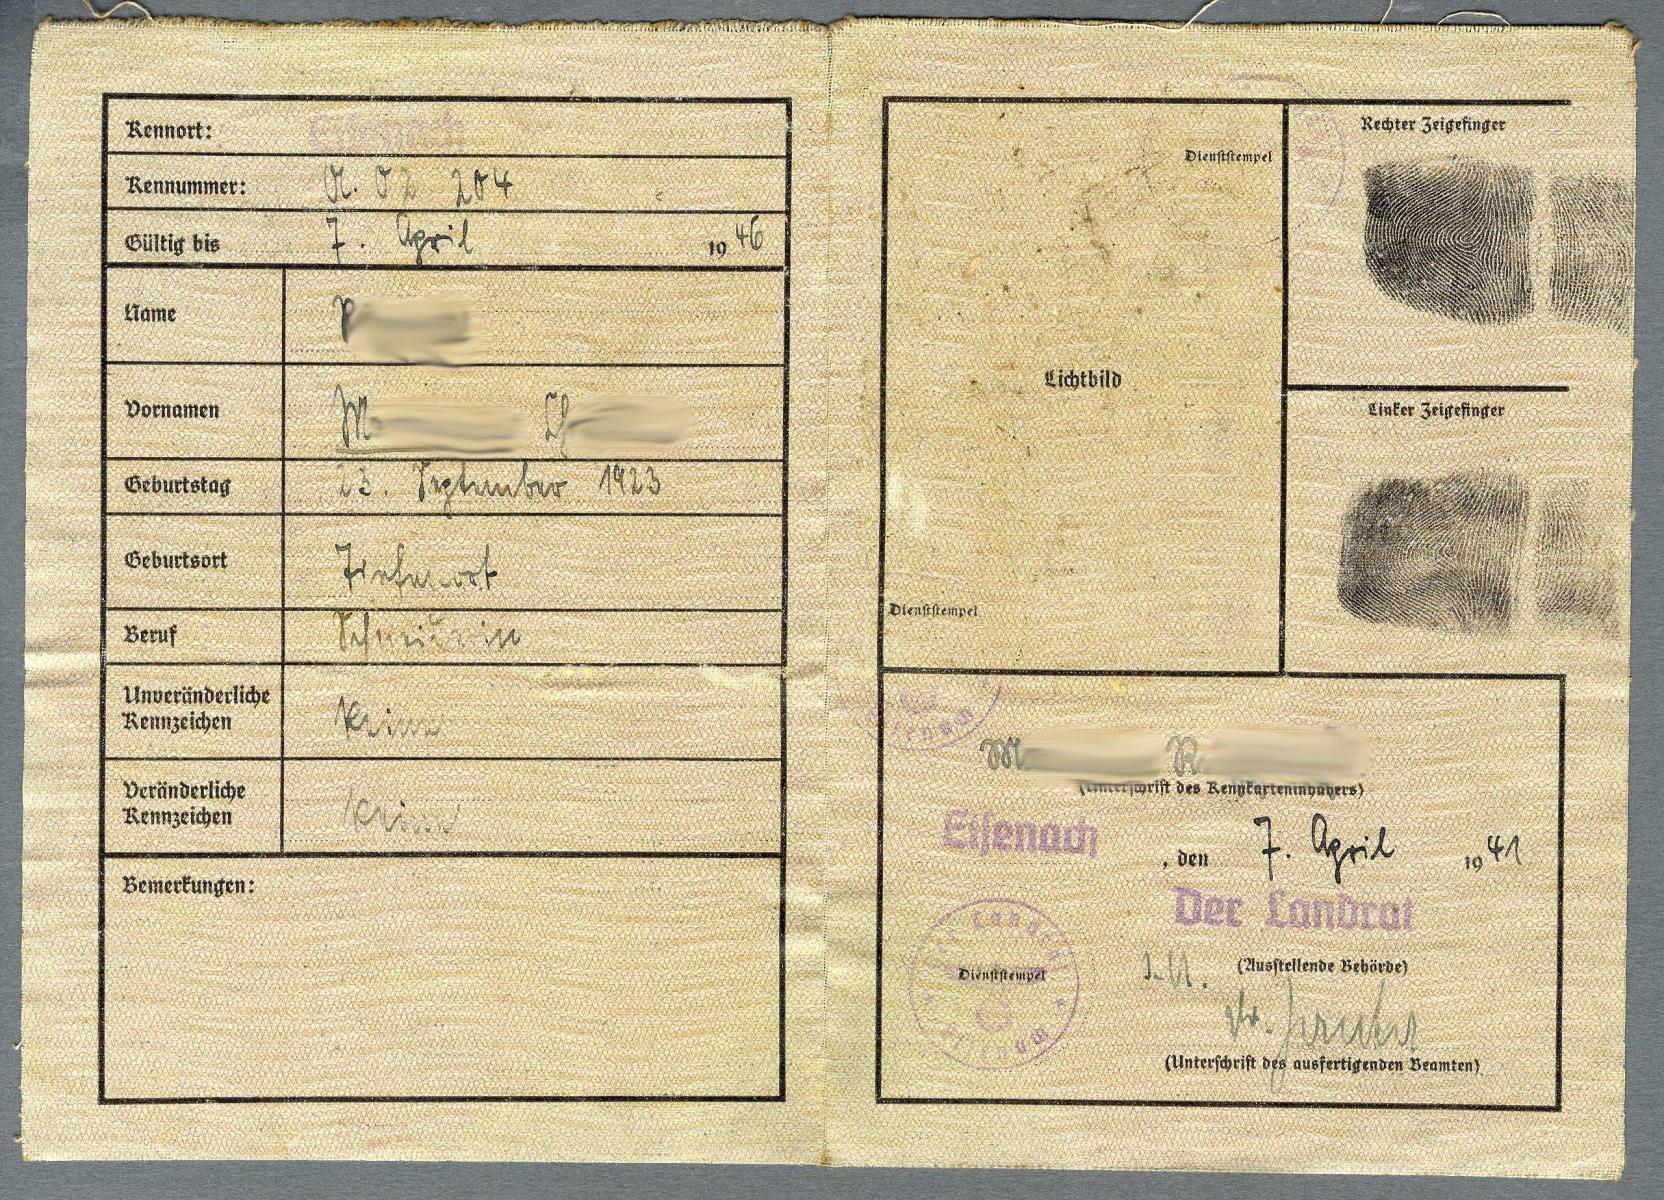 Kennort: Eisenach
Kennummer: A. 02 204
Gültig bis 7. April 1946
Name
Vornamen
Geburtstag 23. September 1923
Geburtsort Tiefenort
Beruf Schneiderin
Unveränderliche
Kennzeichen keine
Veränderliche
Kennzeichen keine
Bemerkungen:
Dienststempel
Lichtbild
Dienststempel
Rechter Zeigefinger
Linker Zeigefinger
(Unterschrift des Kennkarteninhabers)
Eisenach, den 7. April 1941
Der Landrat
(Ausstellende Behörde)
Der Landrat
Dienststempel
Eisenach
Dr.
(Unterschrift des ausfertigenden Beamten)